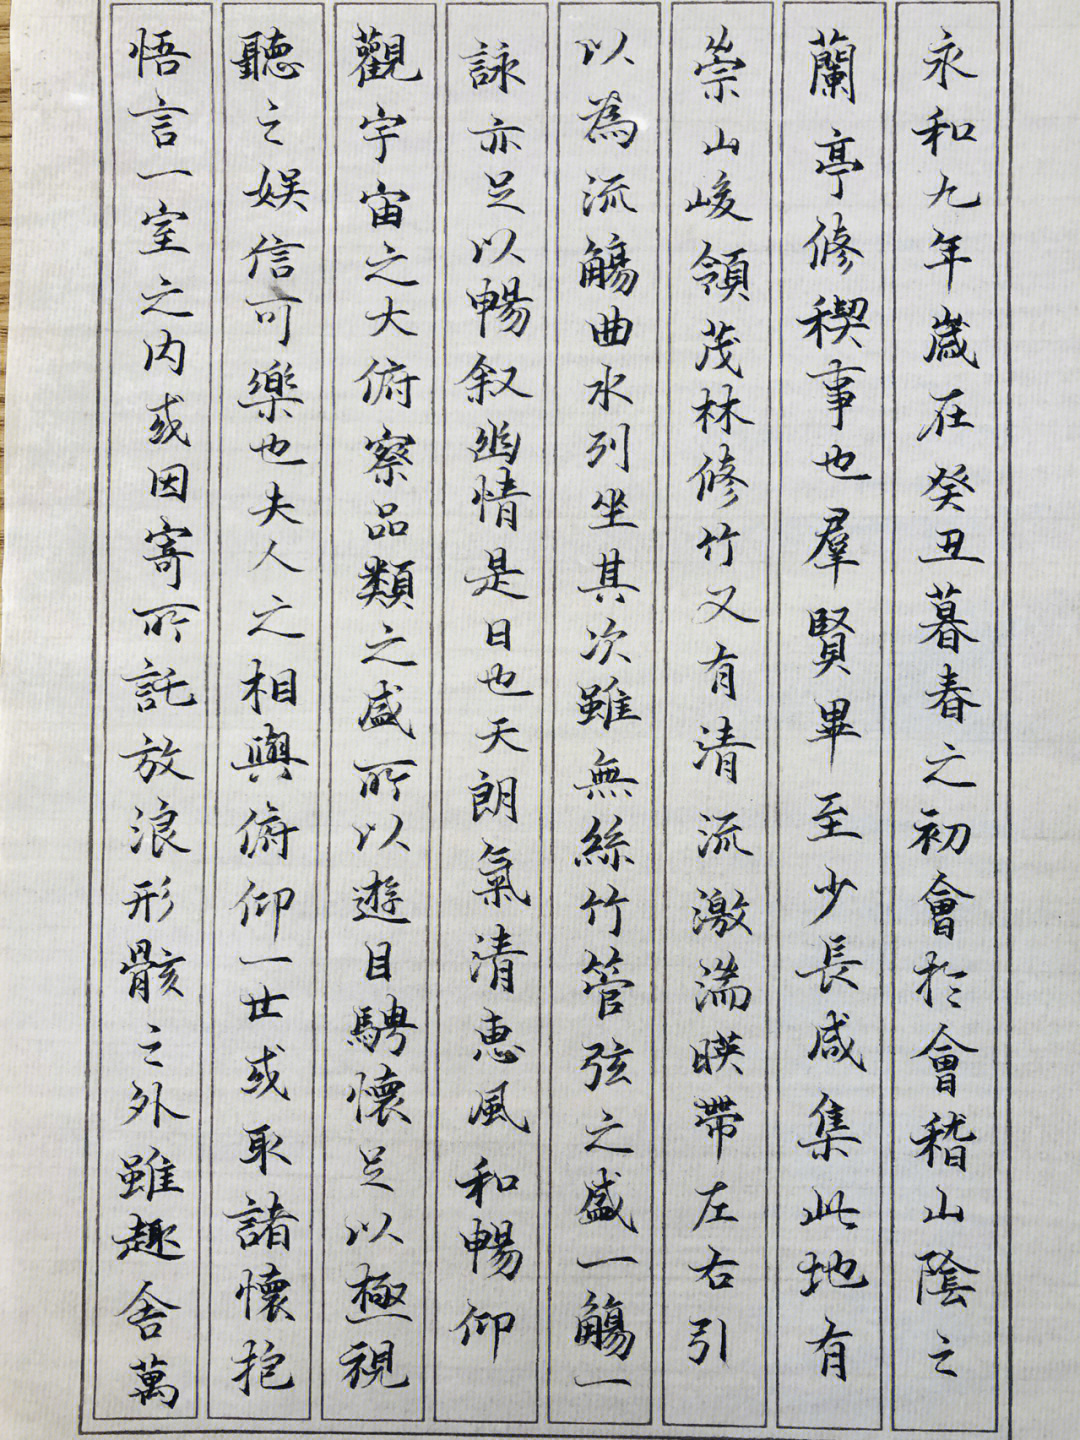 永和九年歲在癸丑暮春之初會於會稽山陰之
蘭亭修稧事也羣賢畢至少長咸集此地有
崇山峻領茂林修竹又有清流激湍暎帶左右引
以為流觴曲水列坐其次雖無絲竹管弦之盛一觴一
詠亦足以暢叙幽情是日也天朗氣清惠風和暢仰
觀宇宙之大俯察品類之盛所以遊目騁懷足以極視
聽之娛信可樂也夫人之相與俯仰一世或取諸懷抱
悟言一室之內或因寄所託放浪形骸之外雖趣舍萬